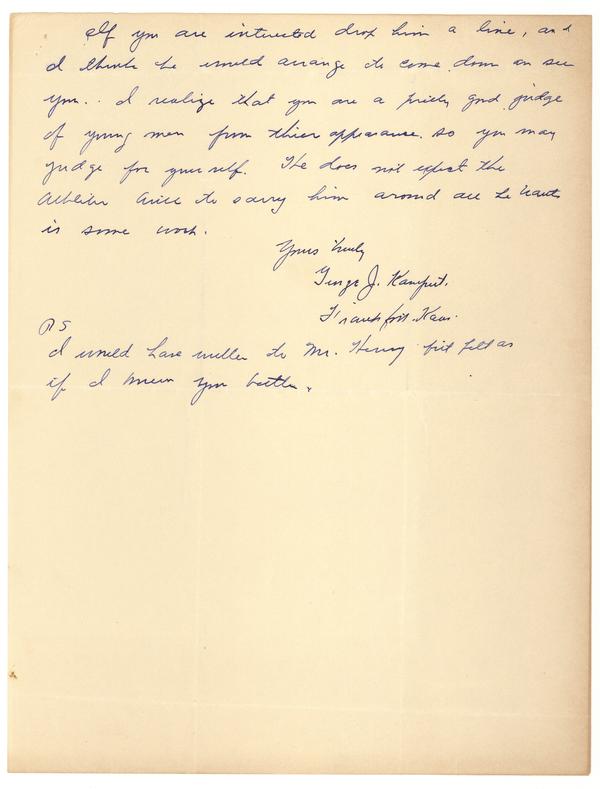 If you are interested drop him a line, and
I think he would arrange to come down an see
you.. I realize that you are a pretty good judge
of young men from thier appearance. so you may
judge for yourself. He does not expect the
Athletic to carry him around all he wants
is some work.
Yours truly
George J.
Frankfort. Kans.
PS
I would have written to Mr. Henry but felt as
if I knew you better.